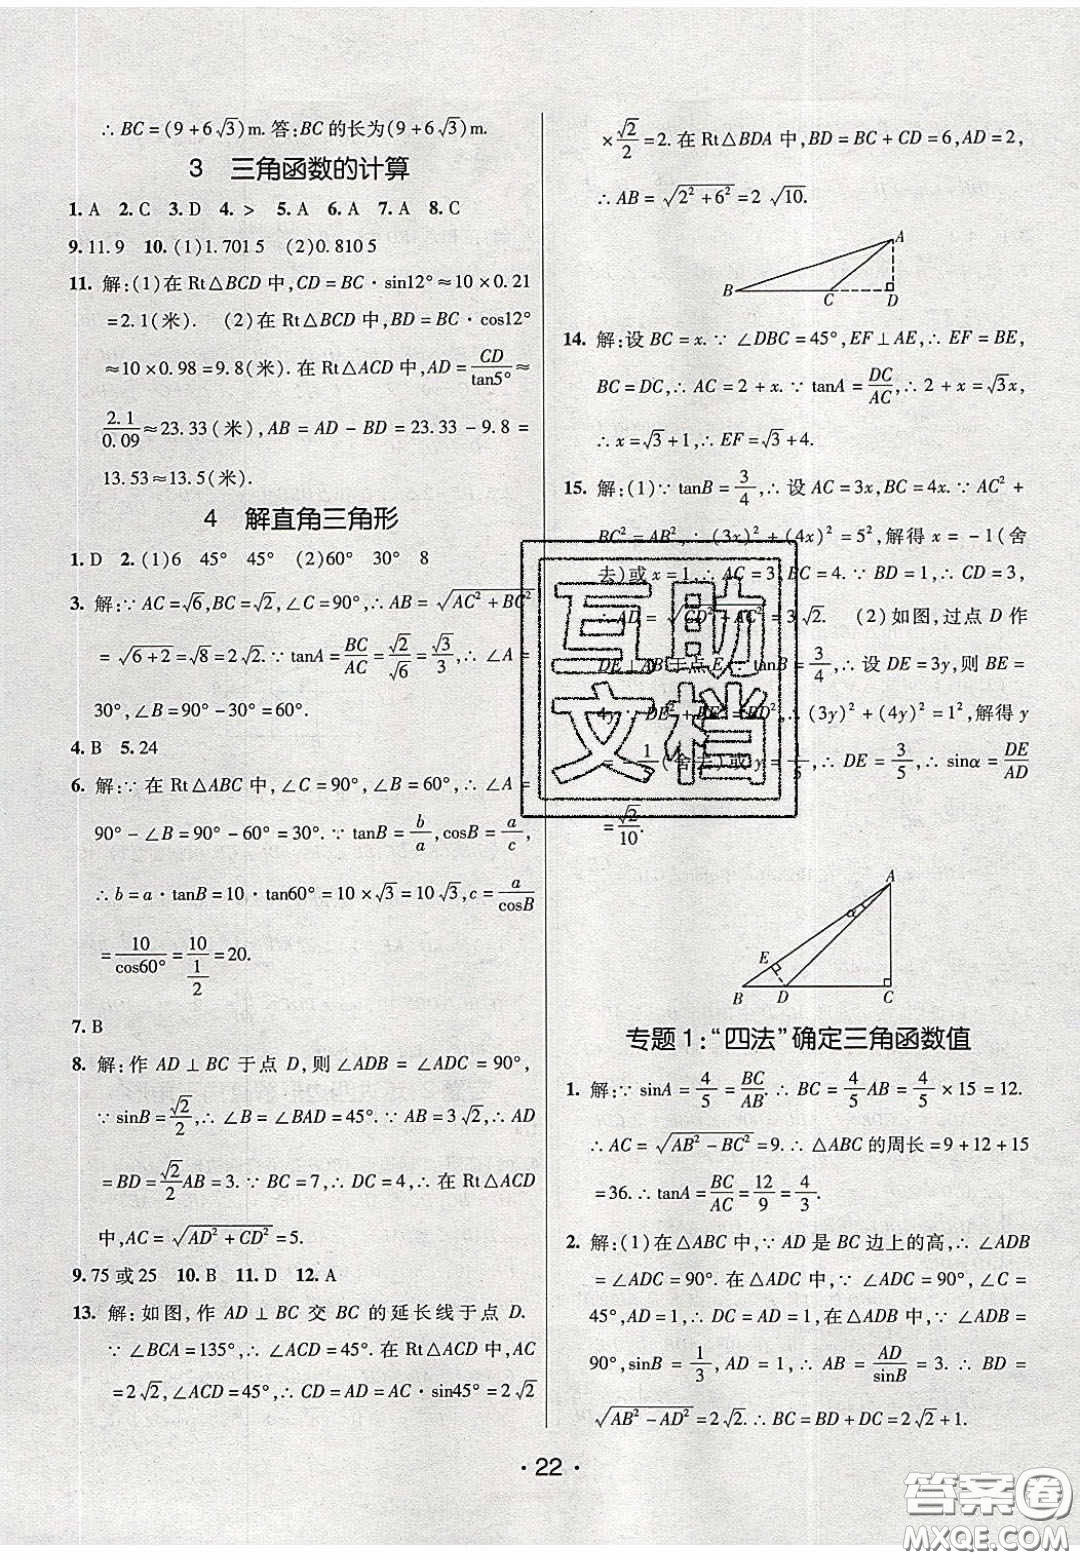 ∴ BC=(9+6√3)m. 答:BC的长为(9+6√3)m.
3 三角函数的计算
1. A 2. C 3. D 4. > 5. A 6. A 7. A 8. C
9. 11.9 10. (1)1.701 5 (2)0.810 5
11. 解:(1)在 Rt△BCD 中,CD=BC·sin12°≈10×0.21
=2.1(米). (2)在 Rt△BCD 中,BD=BC·cos12°
≈10×0.98=9.8(米). 在 Rt△ACD 中,AD=CD/tan5°≈
2.1/0.09≈23.33(米),AB=AD-BD=23.33-9.8=
13.53≈13.5(米).
4 解直角三角形
1. D 2. (1)6 45° 45° (2)60° 30° 8
3. 解:∵AC=√6,BC=√2,∠C=90°,∴AB=√(AC²+BC²)
=√(6+2)=√8=2√2. ∵tanA=BC/AC=√2/√6=√3/3,∴∠A=
30°,∠B=90°-30°=60°.
4. B 5. 24
6. 解:∵在 Rt△ABC 中,∠C=90°,∠B=60°,∴∠A=
90°-∠B=90°-60°=30°. ∵tanB=b/a,cosB=a/c,
∴b=a·tanB=10·tan60°=10×√3=10√3,c=a/cosB
=10/cos60°=10/(1/2)=20.
7. B
8. 解:作 AD⊥BC 于点 D,则∠ADB=∠ADC=90°,
∵sinB=√2/2,∴∠B=∠BAD=45°. ∵AB=3√2,∴AD
=BD=√2/2AB=3. ∵BC=7,∴DC=4,∴在 Rt△ACD
中,AC=√(AD²+CD²)=5.
9. 75 或 25 10. B 11. D 12. A
13. 解:如图,作 AD⊥BC 交 BC 的延长线于点 D.
∵∠BCA=135°,∴∠ACD=45°. 在 Rt△ACD 中,AC
=2√2,∠ACD=45°,∴CD=AD=AC·sin45°=2√2
×√2/2=2. 在 Rt△BDA 中,BD=BC+CD=6,AD=2,
∴AB=√(2²+6²)=2√10.
A
B C D
14. 解:设 BC=x. ∵∠DBC=45°,EF⊥AE,∴EF=BE,
BC=DC,∴AC=2+x. ∵tanA=DC/AC,∴2+x=√3x,
∴x=√3+1,∴EF=√3+4.
15. 解:(1)∵tanB=3/4,∴设 AC=3x,BC=4x. ∵AC²+
BC²=AB²,∴(3x)²+(4x)²=5²,解得 x=-1(舍
去)或 x=1,∴AC=3,BC=4. ∵BD=1,∴CD=3,
∴AD=√(CD²+AC²)=3√2. (2)如图,过点 D 作
DE⊥AB 于点 E,∵tanB=3/4,∴设 DE=3y,则 BE=
4y. ∵DE²+BE²=BD²,∴(3y)²+(4y)²=1²,解得 y
=-1/5(舍去)或 y=1/5,∴DE=3/5,∴sinα=DE/AD
=√2/10.
A
α
E
B D C
专题1:“四法”确定三角函数值
1. 解:∵sinA=4/5=BC/AB. ∴BC=4/5AB=4/5×15=12.
∴AC=√(AB²-BC²)=9. ∴△ABC 的周长=9+12+15
=36. ∴tanA=BC/AC=12/9=4/3.
2. 解:(1)在△ABC 中,∵AD 是 BC 边上的高,∴∠ADB
=∠ADC=90°. 在△ADC 中,∵∠ADC=90°,∠C=
45°,AD=1,∴DC=AD=1,在△ADB 中,∵∠ADB=
90°,sinB=1/3,AD=1,∴AB=AD/sinB=3. ∴BD=
√(AB²-AD²)=2√2. ∴BC=BD+DC=2√2+1.
·22·
互助
文档
答案卷
MXQE.COM